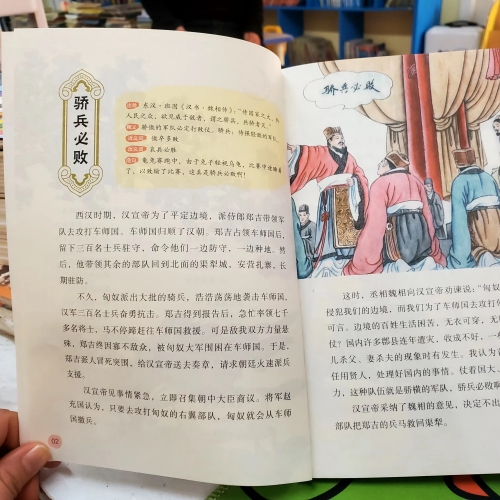 骄兵必败
出处 东汉·班固《汉书·魏相传》:“恃国家之大,矜
人民之众,欲见威于敌者,谓之骄兵,兵骄者灭。”
释义 骄傲的军队必定打败仗。骄兵:恃强轻敌的军队。
近义词 傲卒多败
反义词 哀兵必胜
造句 龟兔赛跑中,由于兔子轻视乌龟,比赛中途睡着
了,以致输了比赛,这真是骄兵必败啊!
西汉时期,汉宣帝为了平定边境,派侍郎郑吉带领军
队去攻打车师国。车师国归顺了汉朝。郑吉占领车师国后,
留下三百名士兵驻守,命令他们一边防守,一边种地。然
后,他带领其余的部队回到北面的渠犁城,安营扎寨,长
期驻防。
不久,匈奴派出大批的骑兵,浩浩荡荡地袭击车师国,
汉军三百名士兵奋勇抗击。郑吉得到报告后,急忙率领七千
多名将士,马不停蹄赶往车师国救援。可是敌我双方力量悬
殊,郑吉终因寡不敌众,被匈奴大军围困在车师国。于是,
郑吉派人冒死突围,给汉宣帝送去奏章,请求朝廷火速派兵
支援。
汉宣帝见事情紧急,立即召集朝中大臣商议。将军赵
充国认为,只要去攻打匈奴的右翼部队,匈奴就会从车师
国撤兵。
02
骄兵必败
这时,丞相魏相向汉宣帝劝谏说:“匈奴
侵犯我们的边境,而我们为了车师国去攻打
可言。边境的百姓生活困苦,无衣可穿,无
仗?国内许多郡县连年遭灾,收成不好,一
儿杀父、妻杀夫的现象时有发生。我认为
任用贤人,处理好国内的事情。仗着国大、
力,这种队伍就是骄横的军队,骄兵必败啊
汉宣帝采纳了魏相的意见,决定不出
部队把郑吉的兵马救回渠犁。